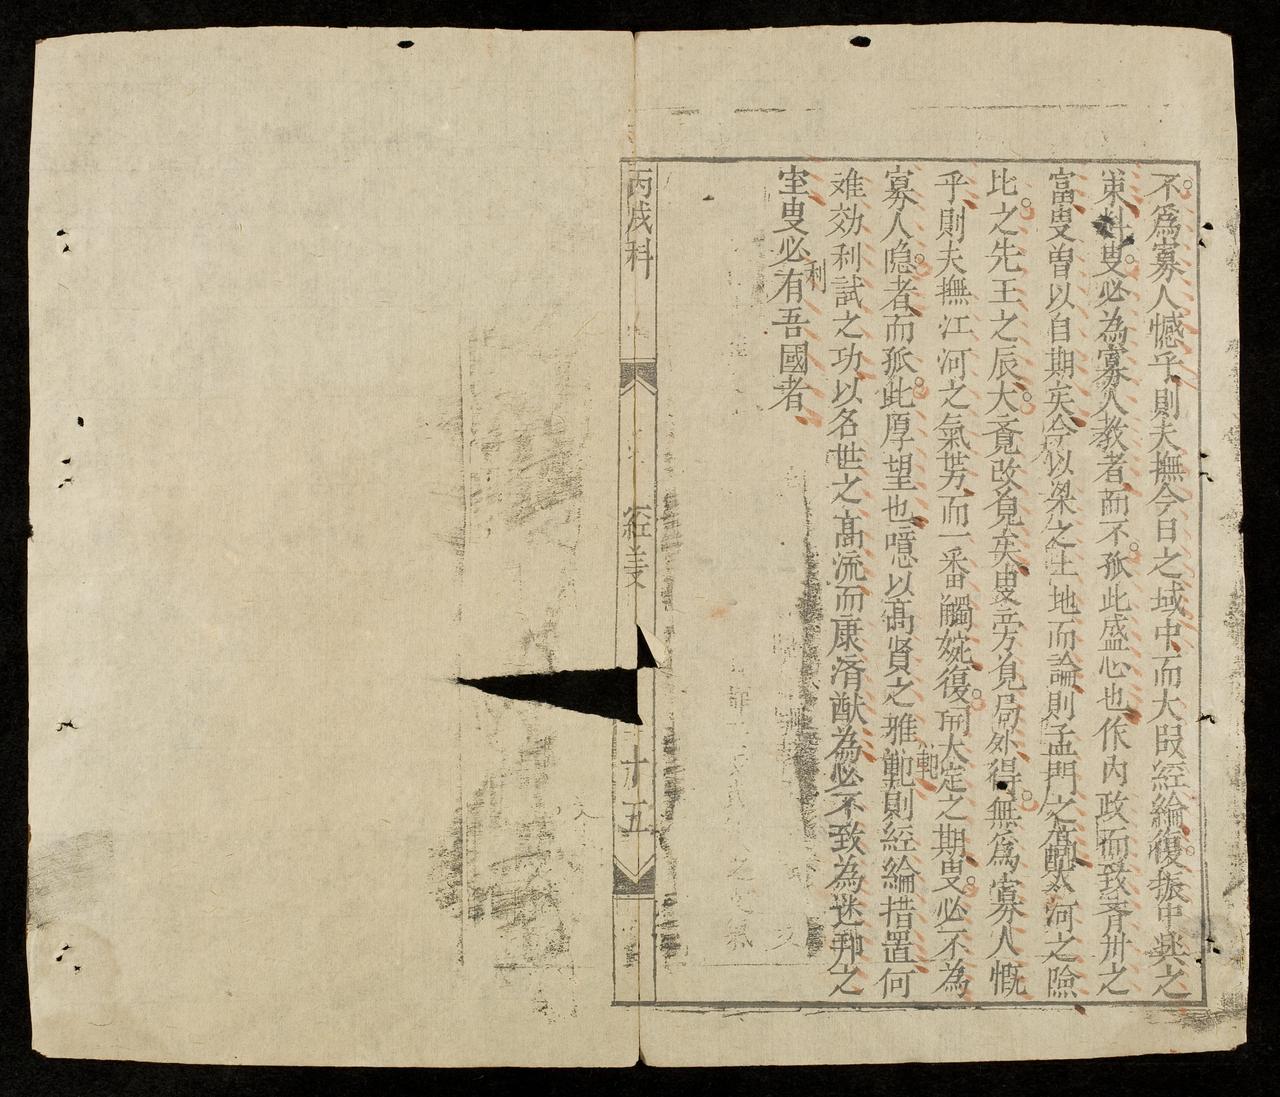 不爲寡人憾乎則夫撫今日之域中而大叚經綸復振中興之
束 叟必為寡人教者而不孤此盛心也作内政而致齊卅之
富叟曽以自期矣今以梁之土地而論則孟門之髙配大河之險
比之先王之辰大竟改覓矣叟旁覓局外得無爲寡人慨
乎則夫撫江河之氣芳而一番觸婉復開大定之期叟必不為
寡人隐者而孤此厚望也噫以髙賢之雅範則經綸措置何
难効利試之功以名世之髙流而康済猷為必不致為迷邦之
宝叟必有利吾國者
範
丙戌科
經義
十五